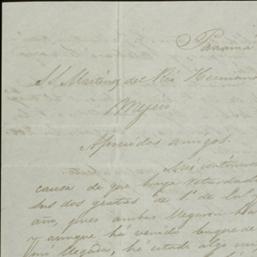 Panamá
S.S. Martinez del Rio Hermanos
Mejico
Apreciados amigos.
causa de que haya retardado
sus dos gratas de 1º de
año, pues ambas llegaron
y aunque ha venido buque de
llegada, hé estado algo